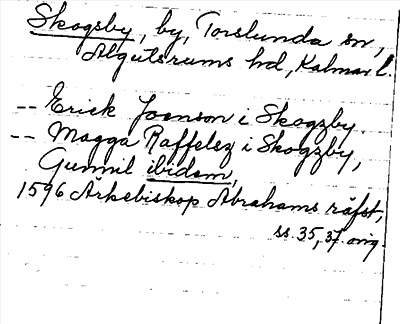 Skogsby, by, Torslunda sn,
Algutsrums hd, Kalmar l.
-- Erick Joenson i Skogzby.
-- Magga Raffelsz i Skogzby,
Gunnil ibidem,
1596 Ärkebiskop Abrahams räfst,
ss. 35, 37 orig.